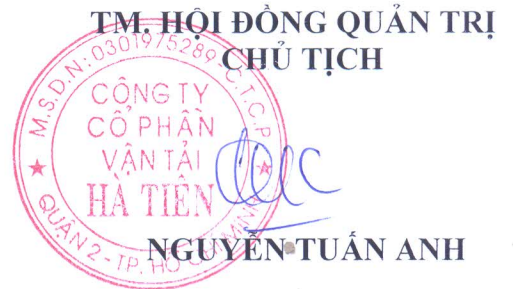 TM. HỘI ĐỒNG QUẢN TRỊ
CHỦ TỊCH
M.S.D.N: 0301975289 - C.T.C.P
CÔNG TY
CỔ PHẦN
VẬN TẢI
HÀ TIÊN
QUẬN 2 - TP. HỒ CHÍ MINH
NGUYỄN TUẤN ANH